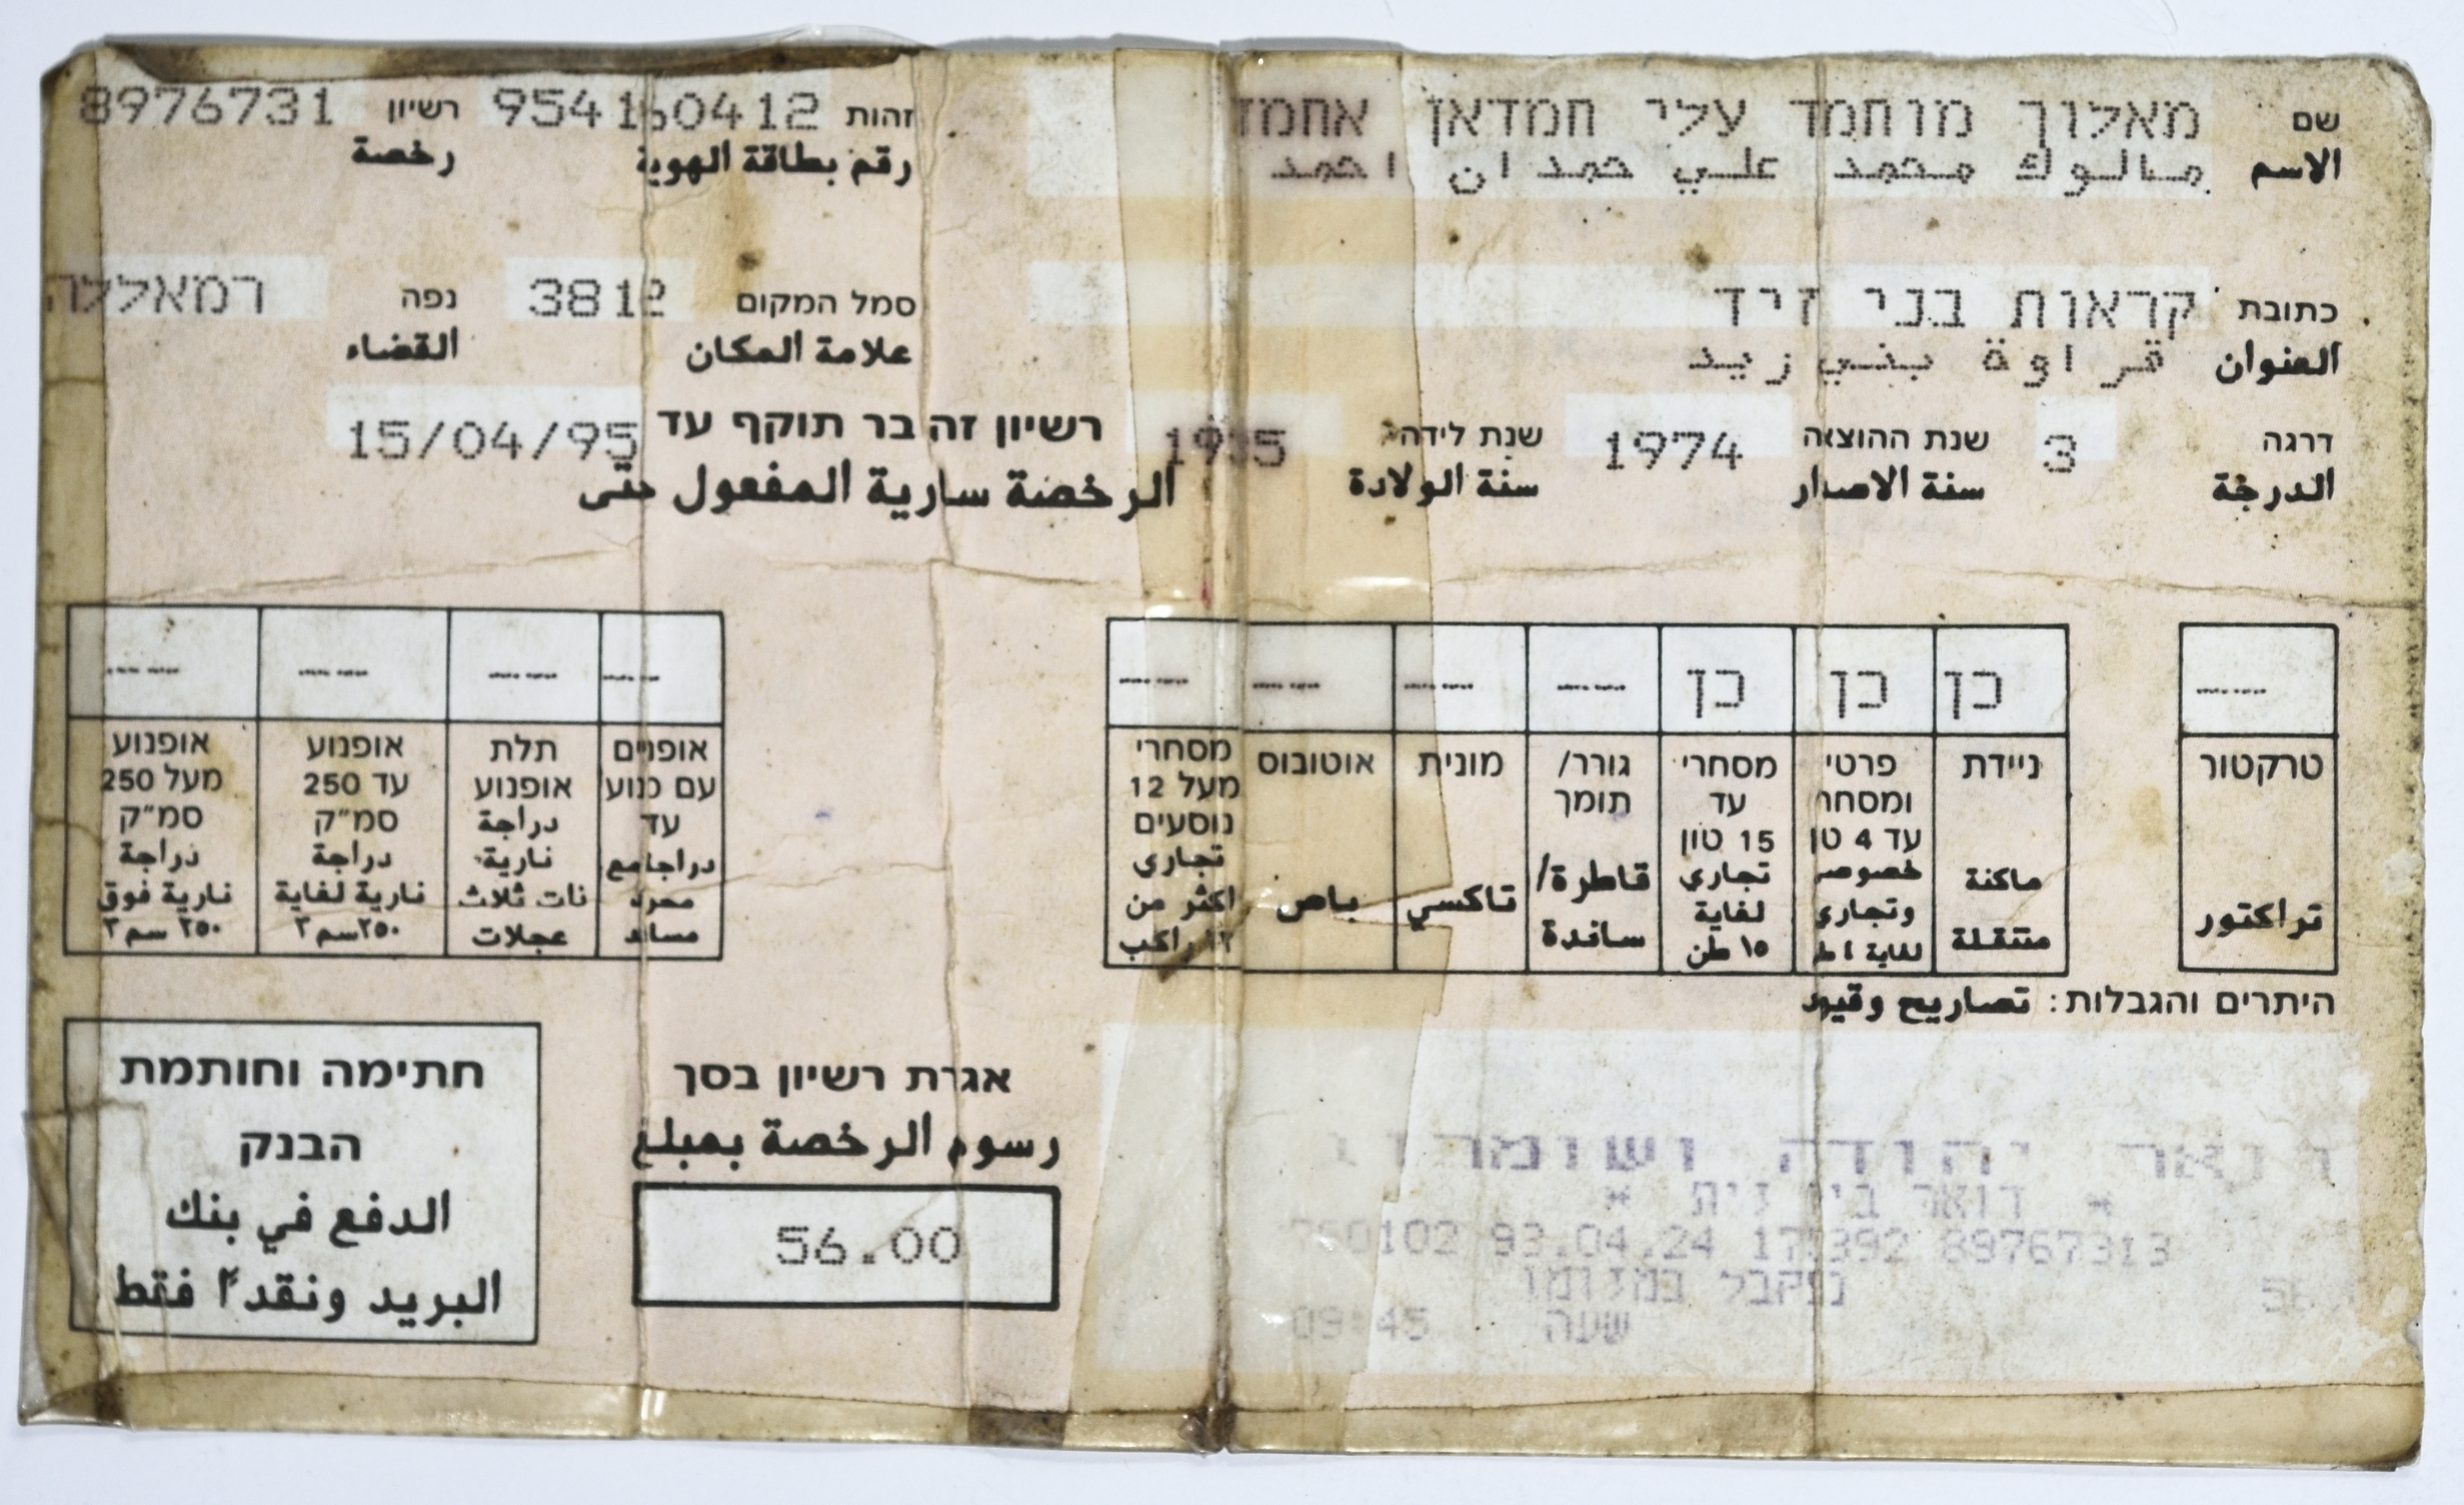 שם מאלוך מוחמד עלי חמדאן אחמד
الاسم مالوك محمد علي حمدان احمد
זהות 954160412 רשיון 8976731
رقم بطاقة الهوية رخصة
כתובת קראות בני זיד
العنوان قراوة بني زيد
סמל המקום 3812 נפה רמאללה
علامة المكان القضاء
דרגה 3 שנת ההוצאה 1974 שנת לידה 1935
الدرجة سنة الاصدار سنة الولادة
רשיון זה בר תוקף עד 15/04/95
الرخصة سارية المفعول حتى
-----
טרקטור
تراكتور
כן
ניידת
ماكنة
متنقلة
כן
פרטי
ומסחר
עד 4 טן
خصوصي
وتجاري
لغاية ٤ ط
כן
מסחרי
עד
15 טון
تجاري
لغاية
١٥ طن
-----
גורר/
תומך
قاطرة/
ساندة
-----
מונית
تاكسي
-----
אוטובוס
باص
-----
מסחרי
מעל 12
נוסעים
تجاري
اكثر من
١٢ راكب
-----
אופנים
עם מנוע
עד
دراجا مع
محرك
مساعد
-----
תלת
אופנוע
دراجة
نارية
ذات ثلاث
عجلات
-----
אופנוע
עד 250
סמ״ק
دراجة
نارية لغاية
٢٥٠سم٣
-----
אופנוע
מעל 250
סמ״ק
دراجة
نارية فوق
٢٥٠ سم٣
היתרים והגבלות: تصاريح وقيود
דואר יהודה ושומרון
* דואר בית *
93.04.24 89767313
נתקבל במזומן
שעה 09:45
אגרת רשיון בסך
رسوم الرخصة بمبلغ
56.00
חתימה וחותמת
הבנק
الدفع في بنك
البريد ونقدًا فقط